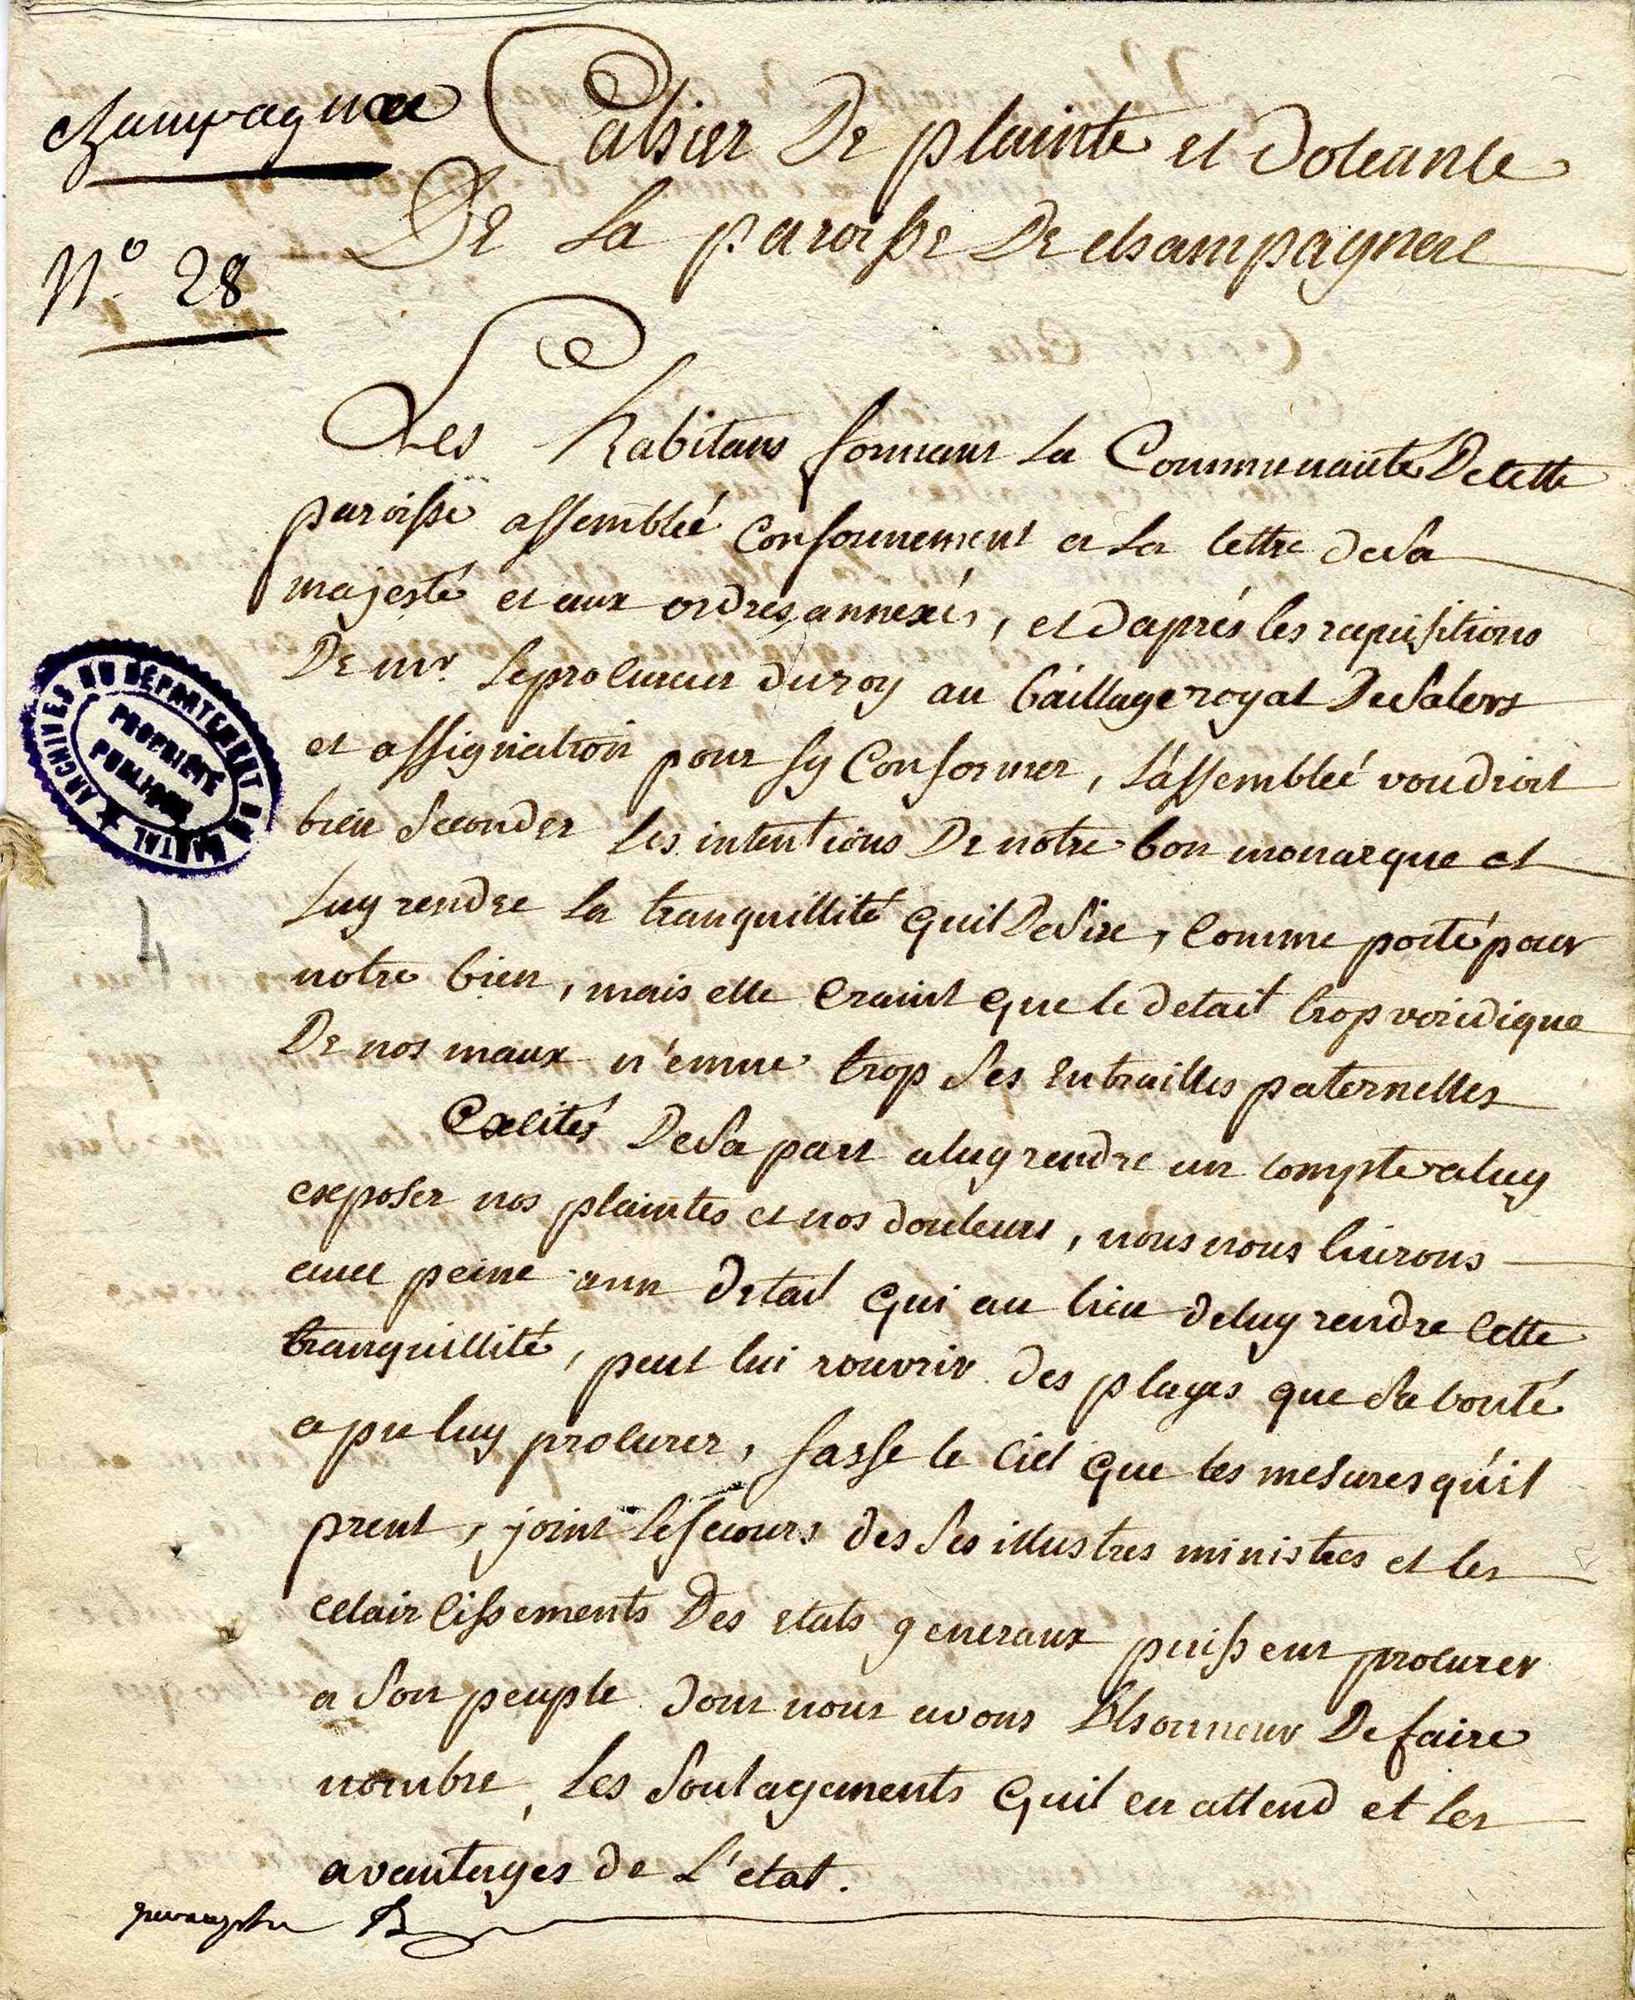 champagnac
N° 28
Cahier De plainte et doleance
De la paroisse De champagnac
Les habitans formant la Communauté De cette
paroisse assemblée conformement a la lettre de sa
majesté et aux ordres annexés, et d'aprés les requisitions
De mr. le procureur du roy au baillage royal De salers
et assignation pour sy conformer, l'assemblée voudroit
bien seconder les intentions De notre bon monarque et
luy rendre la tranquillité quil desire, comme porté pour
notre bien, mais elle craint que le detail trop veridique
De nos maux n'emue trop ses entrailles paternelles
Excités De sa part a luy rendre un compte a luy
exposer nos plaintes et nos douleurs, nous nous livrons
avec peine a un detail qui au lieu de luy rendre cette
tranquillité, peut lui rouvrir des playes que sa bonté
a pu luy procurer, fasse le ciel que les mesures qu'il
prent, joint le secours des ses illustres ministres et les
eclaircissements Des etats generaux puissent procurer
a son peuple dont nous avons l'honneur De faire
nombre, les soulagements quil en attend et les
avantages de l'etat.
ARCHIVES DU DEPARTEMENT DU CANTAL
PROPRIÉTÉ
PUBLIQUE
4